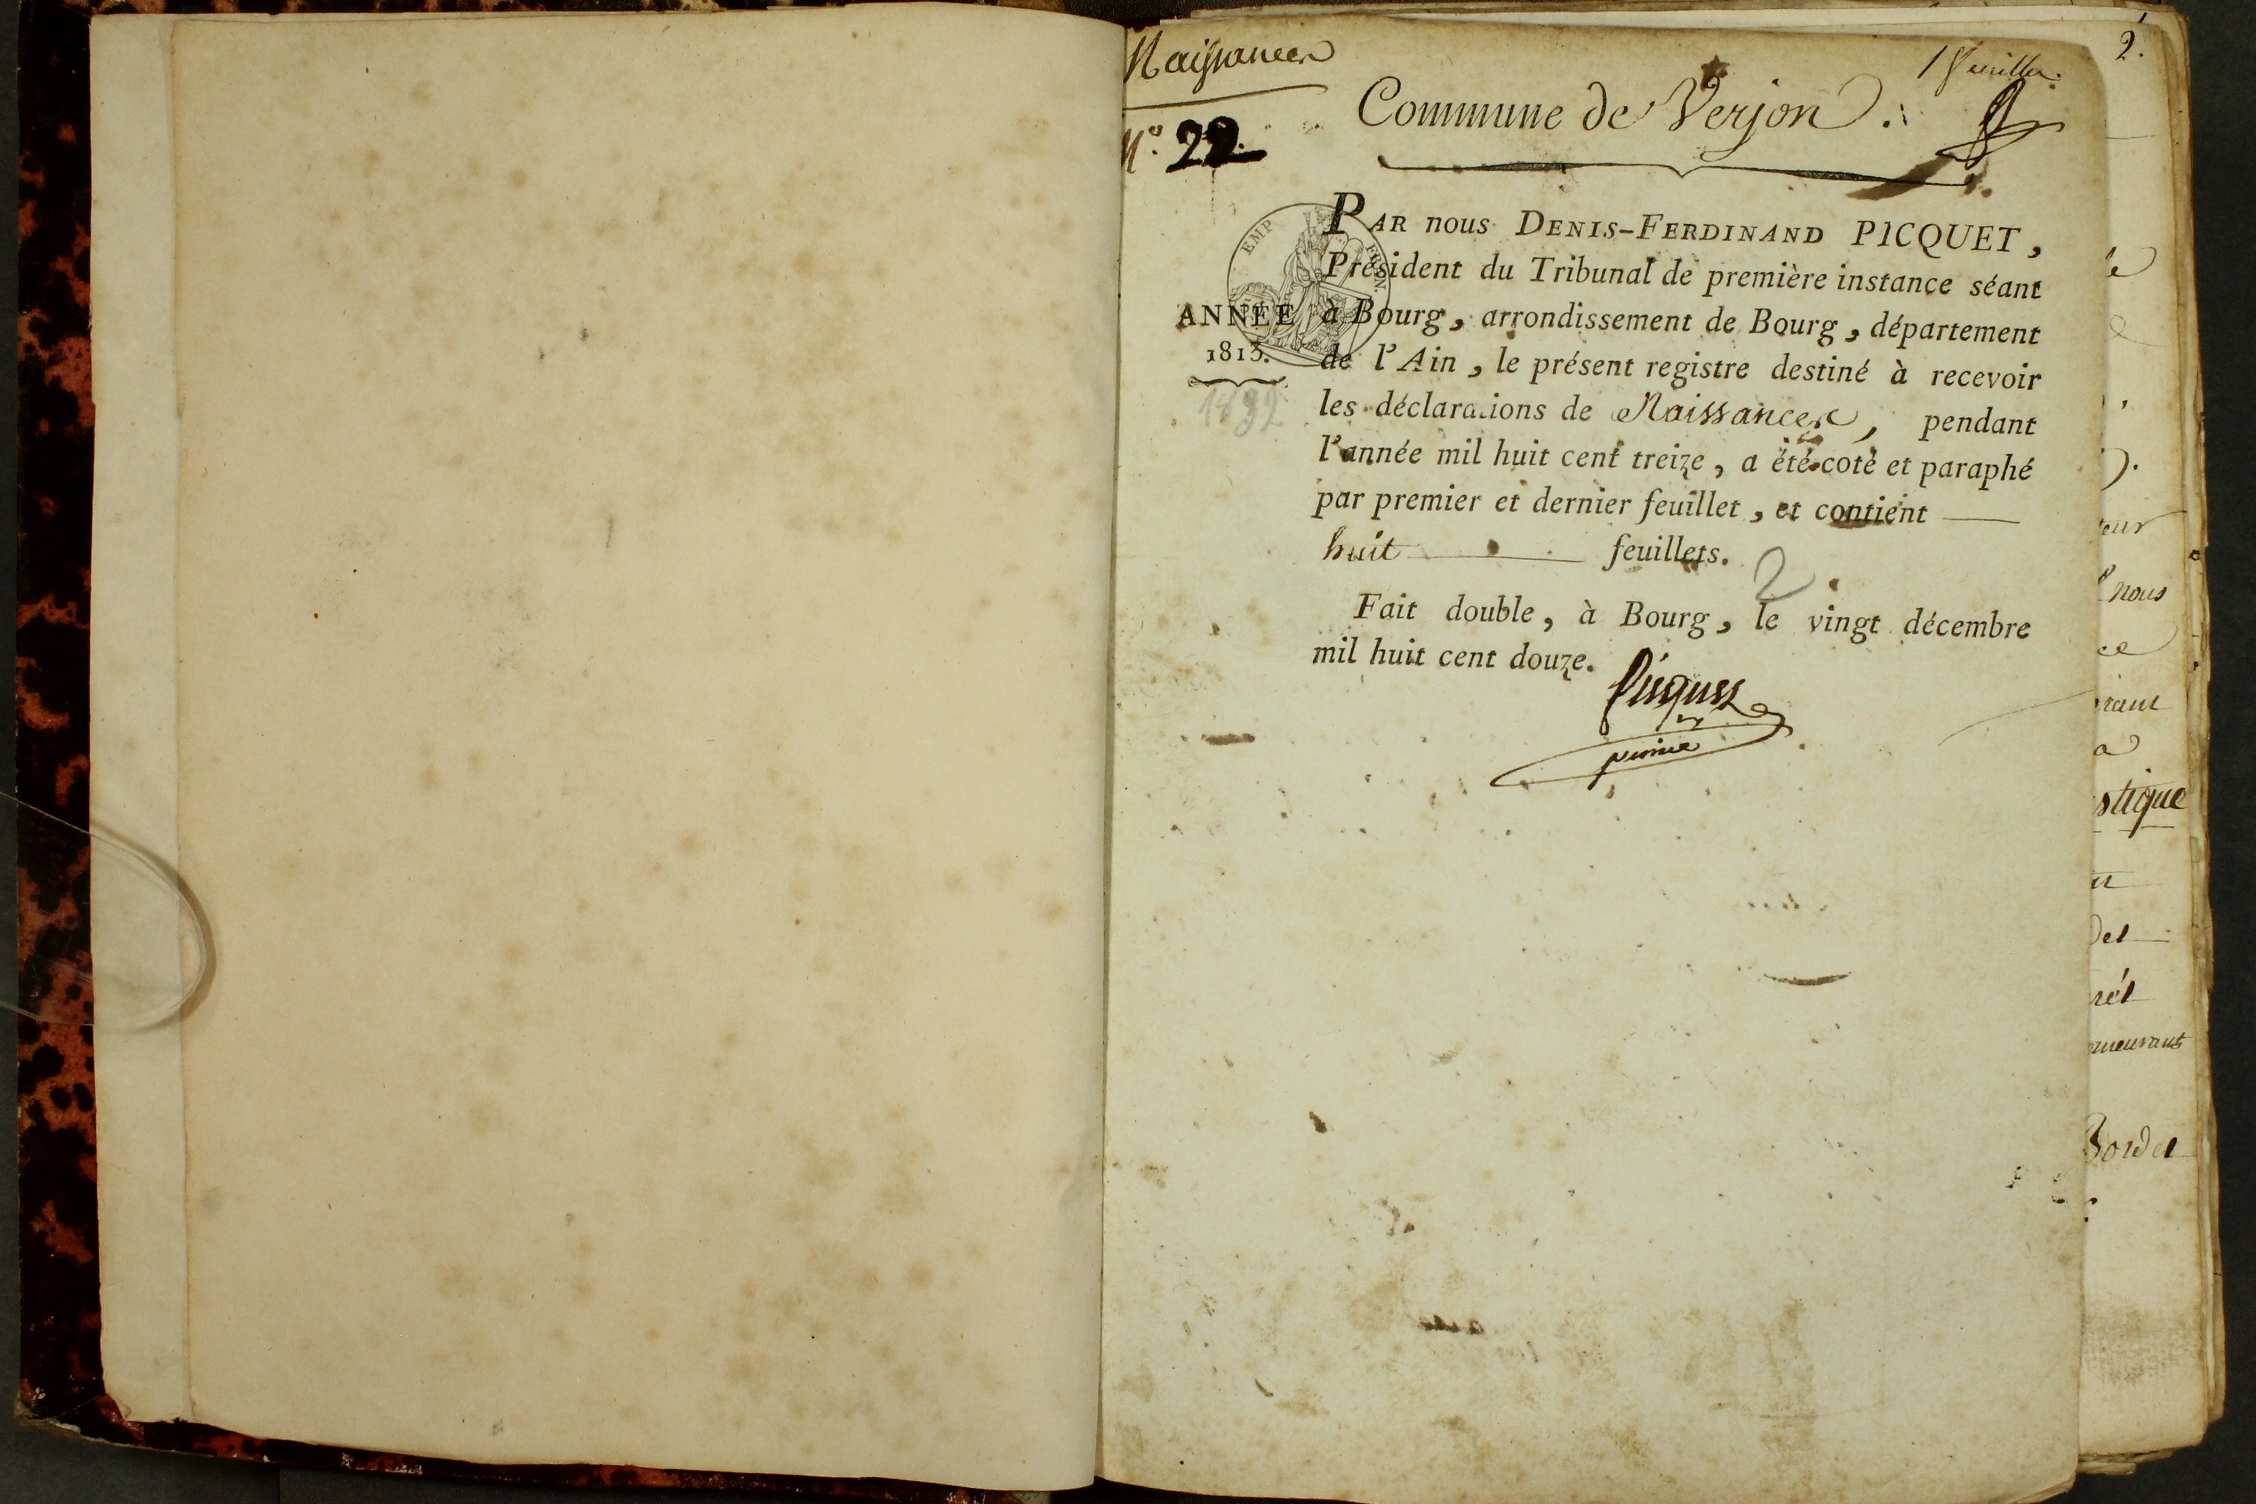 Naissances
1 feuillet.
2.
Commune de Verjon.
N.° 22.
EMP FRAN.
PAR nous DENIS-FERDINAND PICQUET,
Président du Tribunal de première instance séant
ANNÉE
1813.
1892
à Bourg, arrondissement de Bourg, département
de l'Ain, le présent registre destiné à recevoir
les déclarations de Naissances, pendant
l'année mil huit cent treize, a été coté et paraphé
par premier et dernier feuillet, et contient
huit feuillets.
2
Fait double, à Bourg, le vingt décembre
mil huit cent douze.
Picquet
nous
stique
meurant
Bordet